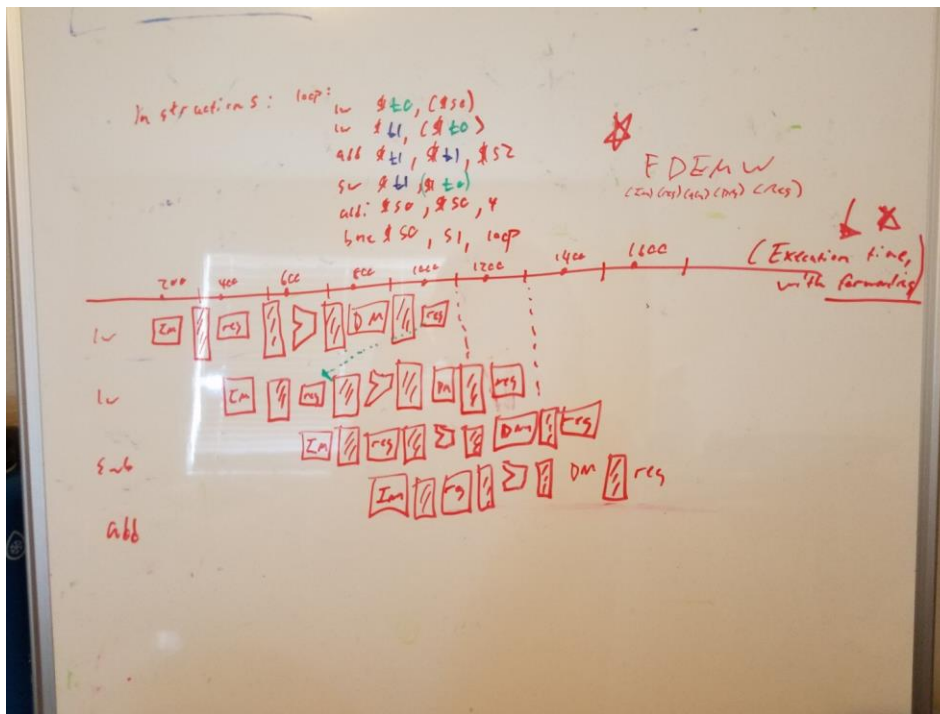 Instructions: loop:
lw $t0, ($s0)
lw $t1, ($t0)
add $t1, $t1, $s2
sw $t1, ($t0)
addi $s0, $s0, 4
bne $s0, s1, loop
FDEMW
(Im) (reg) (ALU) (Dm) (reg)
(Execution time, with forwarding)
200 400 600 800 1000 1200 1400 1600
lw Im reg DM reg
lw Im reg Dm reg
sub Im reg Dm reg
add Im reg DM reg